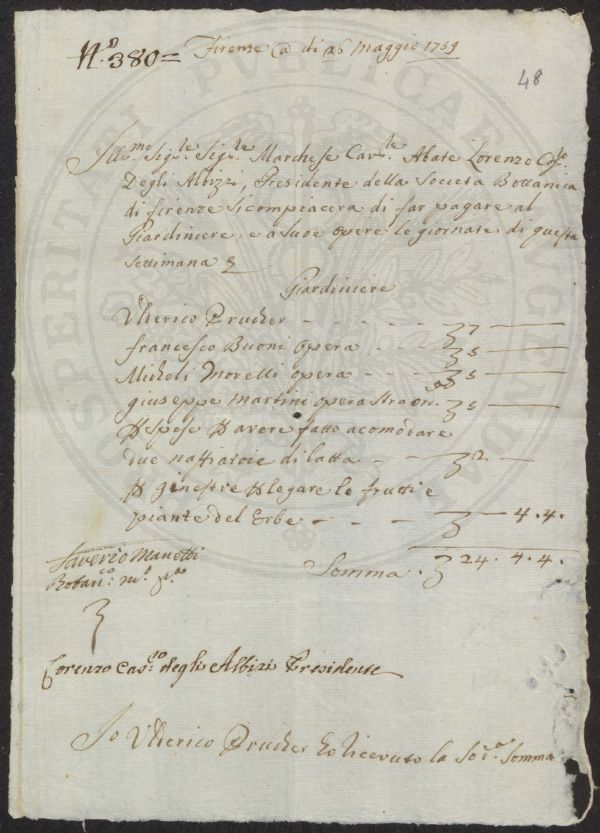 N.º 380 = Firenze @ di 26 Maggio 1759
48
Ill.mo Sig.le Sig.le Marchese Cav.le Abate Lorenzo
Degli Albizzi, Presidente della Società Bottanica
di firenze si compiacera di far pagare al
Giardiniere, e a suoe opere le giornate di questa
settimana
Giardiniere
Ulderico Prucher - - - - - 7 —
francesco Buoni opera - - - 5 —
Micheli Morelli opera - - - 5 —
giuseppe Martini opera straord.ia 5 —
spese avere fatto acomodare
due naffiatoie di latta - - 2 —
ginestre legare le frutti e
piante del Erbe - - - - 4. 4.
Saverio Manetti
Somma . 24. 4. 4.
Botan.co
Lorenzo Cav.ro degli Albizi Presidente
Io Ulderico Prucher ho riceuto la Somma
SPERITATI PUBLICAE AUGENDAE